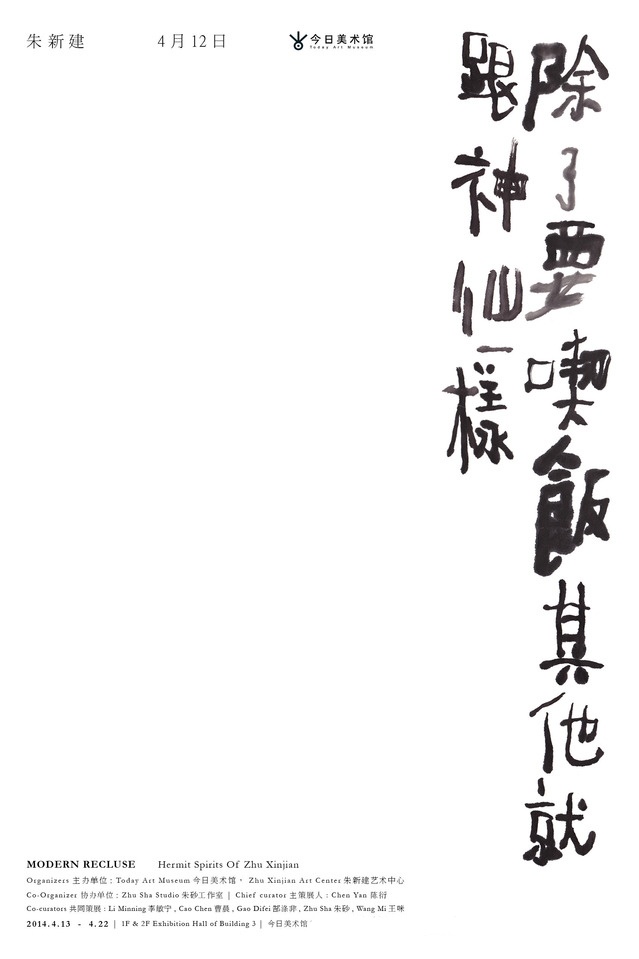 朱新建 4月12日 今日美术馆
Today Art Museum
除了要喫飯其他就
跟神仙一樣
MODERN RECLUSE Hermit Spirits Of Zhu Xinjian
Organizers 主办单位 : Today Art Museum 今日美术馆 · Zhu Xinjian Art Center 朱新建艺术中心
Co-Organizer 协办单位 : Zhu Sha Studio 朱砂工作室 | Chief curator 主策展人 : Chen Yan 陈衍
Co-curators 共同策展 : Li Minning 李敏宁 , Cao Chen 曹晨 , Gao Difei 郜涤非 , Zhu Sha 朱砂 , Wang Mi 王咪
2014.4.13 - 4.22 | 1F & 2F Exhibition Hall of Building 3 | 今日美术馆